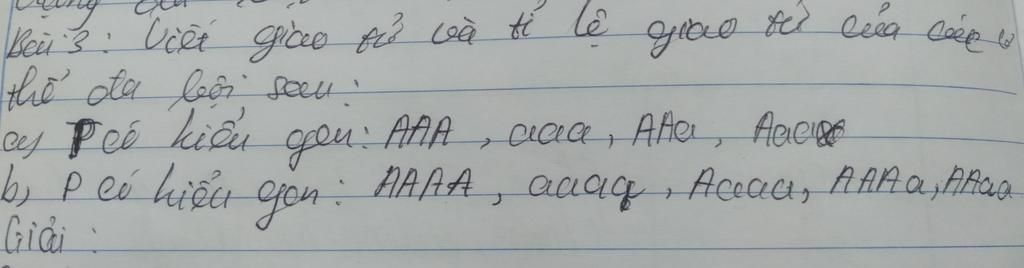 Bài 3: Viết giao tử và tỉ lệ giao tử của các
thể đa bội sau:
a, P có kiểu gen: AAA, aaa, AAa, Aaa
b, P có kiểu gen: AAAA, aaaa, Aaaa, AAAa, AAaa
Giải: